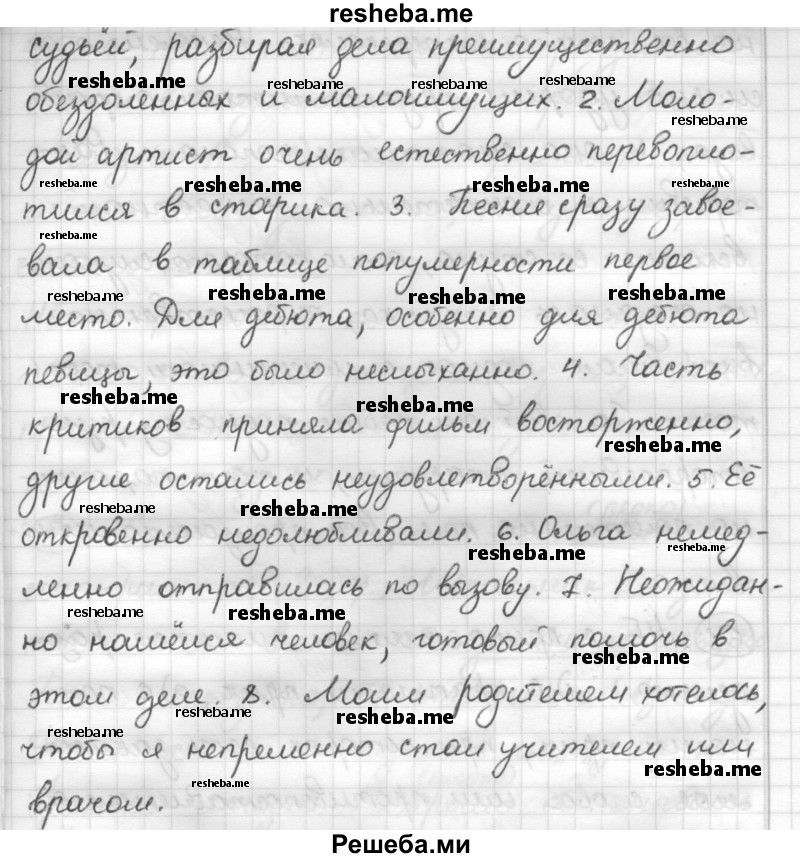 resheba.me
судьёй, разбирая дела преимущественно
resheba.me resheba.me resheba.me resheba.me
обездоленных и малоимущих. 2. Моло-
resheba.me
дой артист очень естественно перевопло-
resheba.me resheba.me resheba.me resheba.me
тился в старика. 3. Песня сразу завое-
resheba.me
вала в таблице популярности первое
resheba.me resheba.me resheba.me resheba.me
место. Для дебюта, особенно для дебюта
певицы, это было неслыханно. 4. Часть
resheba.me resheba.me
критиков приняла фильм восторженно,
resheba.me
другие остались неудовлетворёнными. 5. Её
resheba.me resheba.me
откровенно недолюбливали. 6. Ольга немед-
resheba.me resheba.me
ленно отправилась по вызову. 7. Неожидан-
resheba.me resheba.me
но нашёлся человек, готовый помочь в
resheba.me
этом деле. 8. Моим родителям хотелось,
resheba.me resheba.me
resheba.me
чтобы я непременно стал учителем или
resheba.me resheba.me
врачом.
Решеба.ми